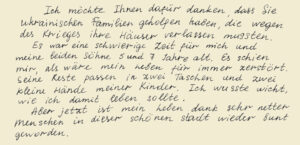 Ich möchte Ihnen dafür danken dass Sie
ukrainischen Familien geholfen haben, die wegen
des Krieges ihre Häuser verlassen mussten.
Es war eine schwierige Zeit für mich und
meine beiden Söhne 5 und 7 Jahre alt. Es schien
mir, als wäre mein Leben für immer zerstört.
Seine Reste passen in zwei Taschen und zwei
kleine Hände meiner Kinder. Ich wusste nicht,
wie ich damit leben sollte.
Aber jetzt ist mein Leben dank sehr netter
Menschen in dieser schönen Stadt wieder bunt
geworden.